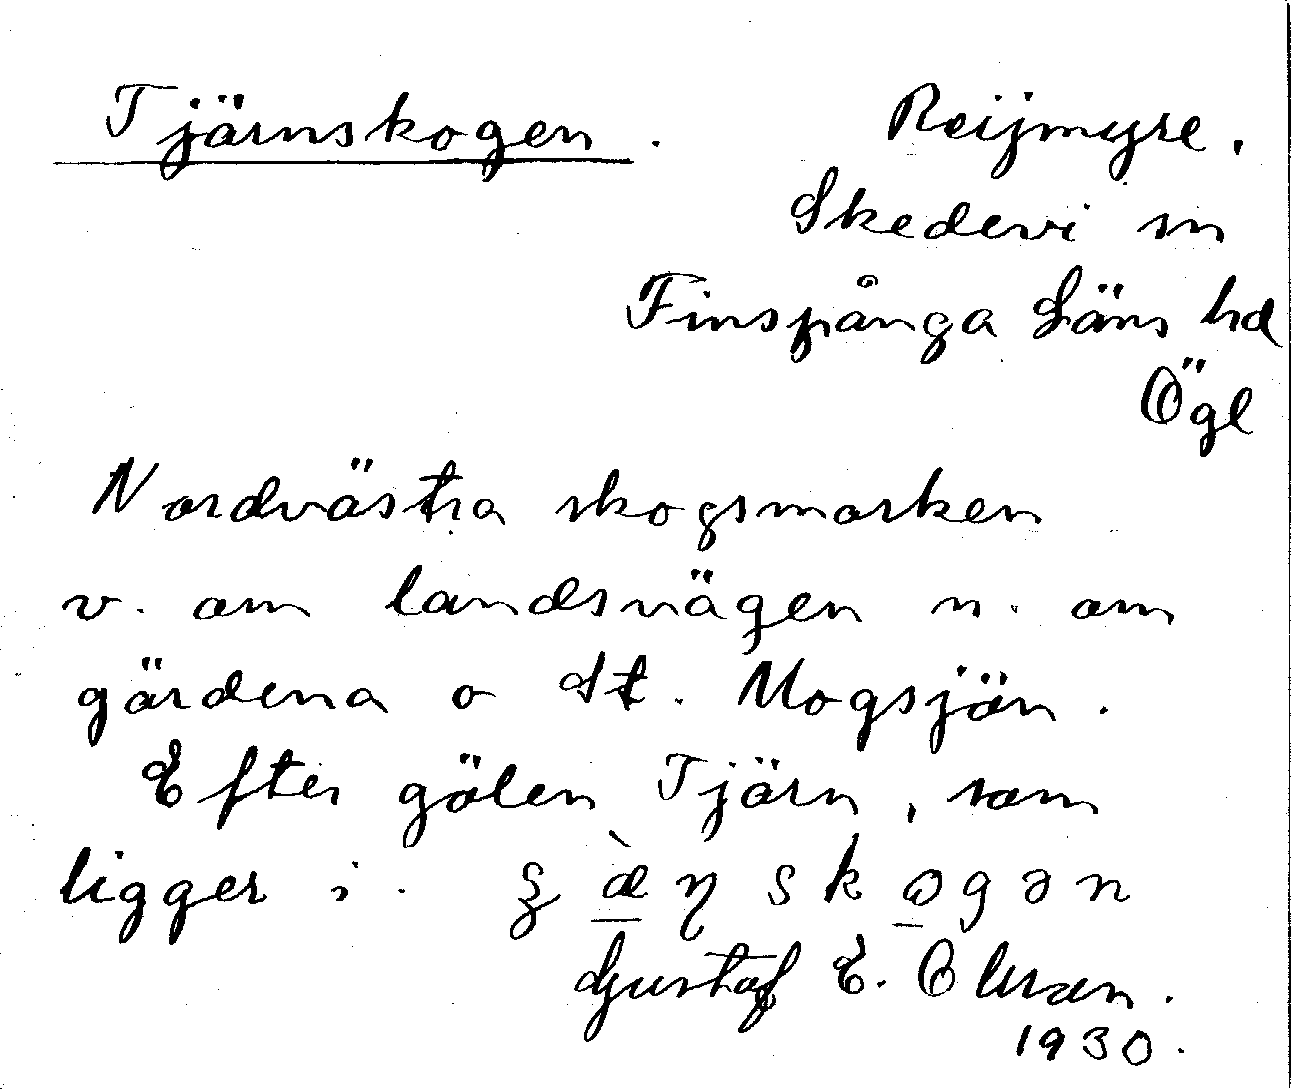 Tjärnskogen. Reijmyre.
Skedevi sn
Finspånga Läns hd
Ögl
Nordvästra skogsmarken
v. om landsvägen n. om
gärdena o St. Mogsjön.
Efter gölen Tjärn, som
ligger i.
Gustaf E. Olsson.
1930.